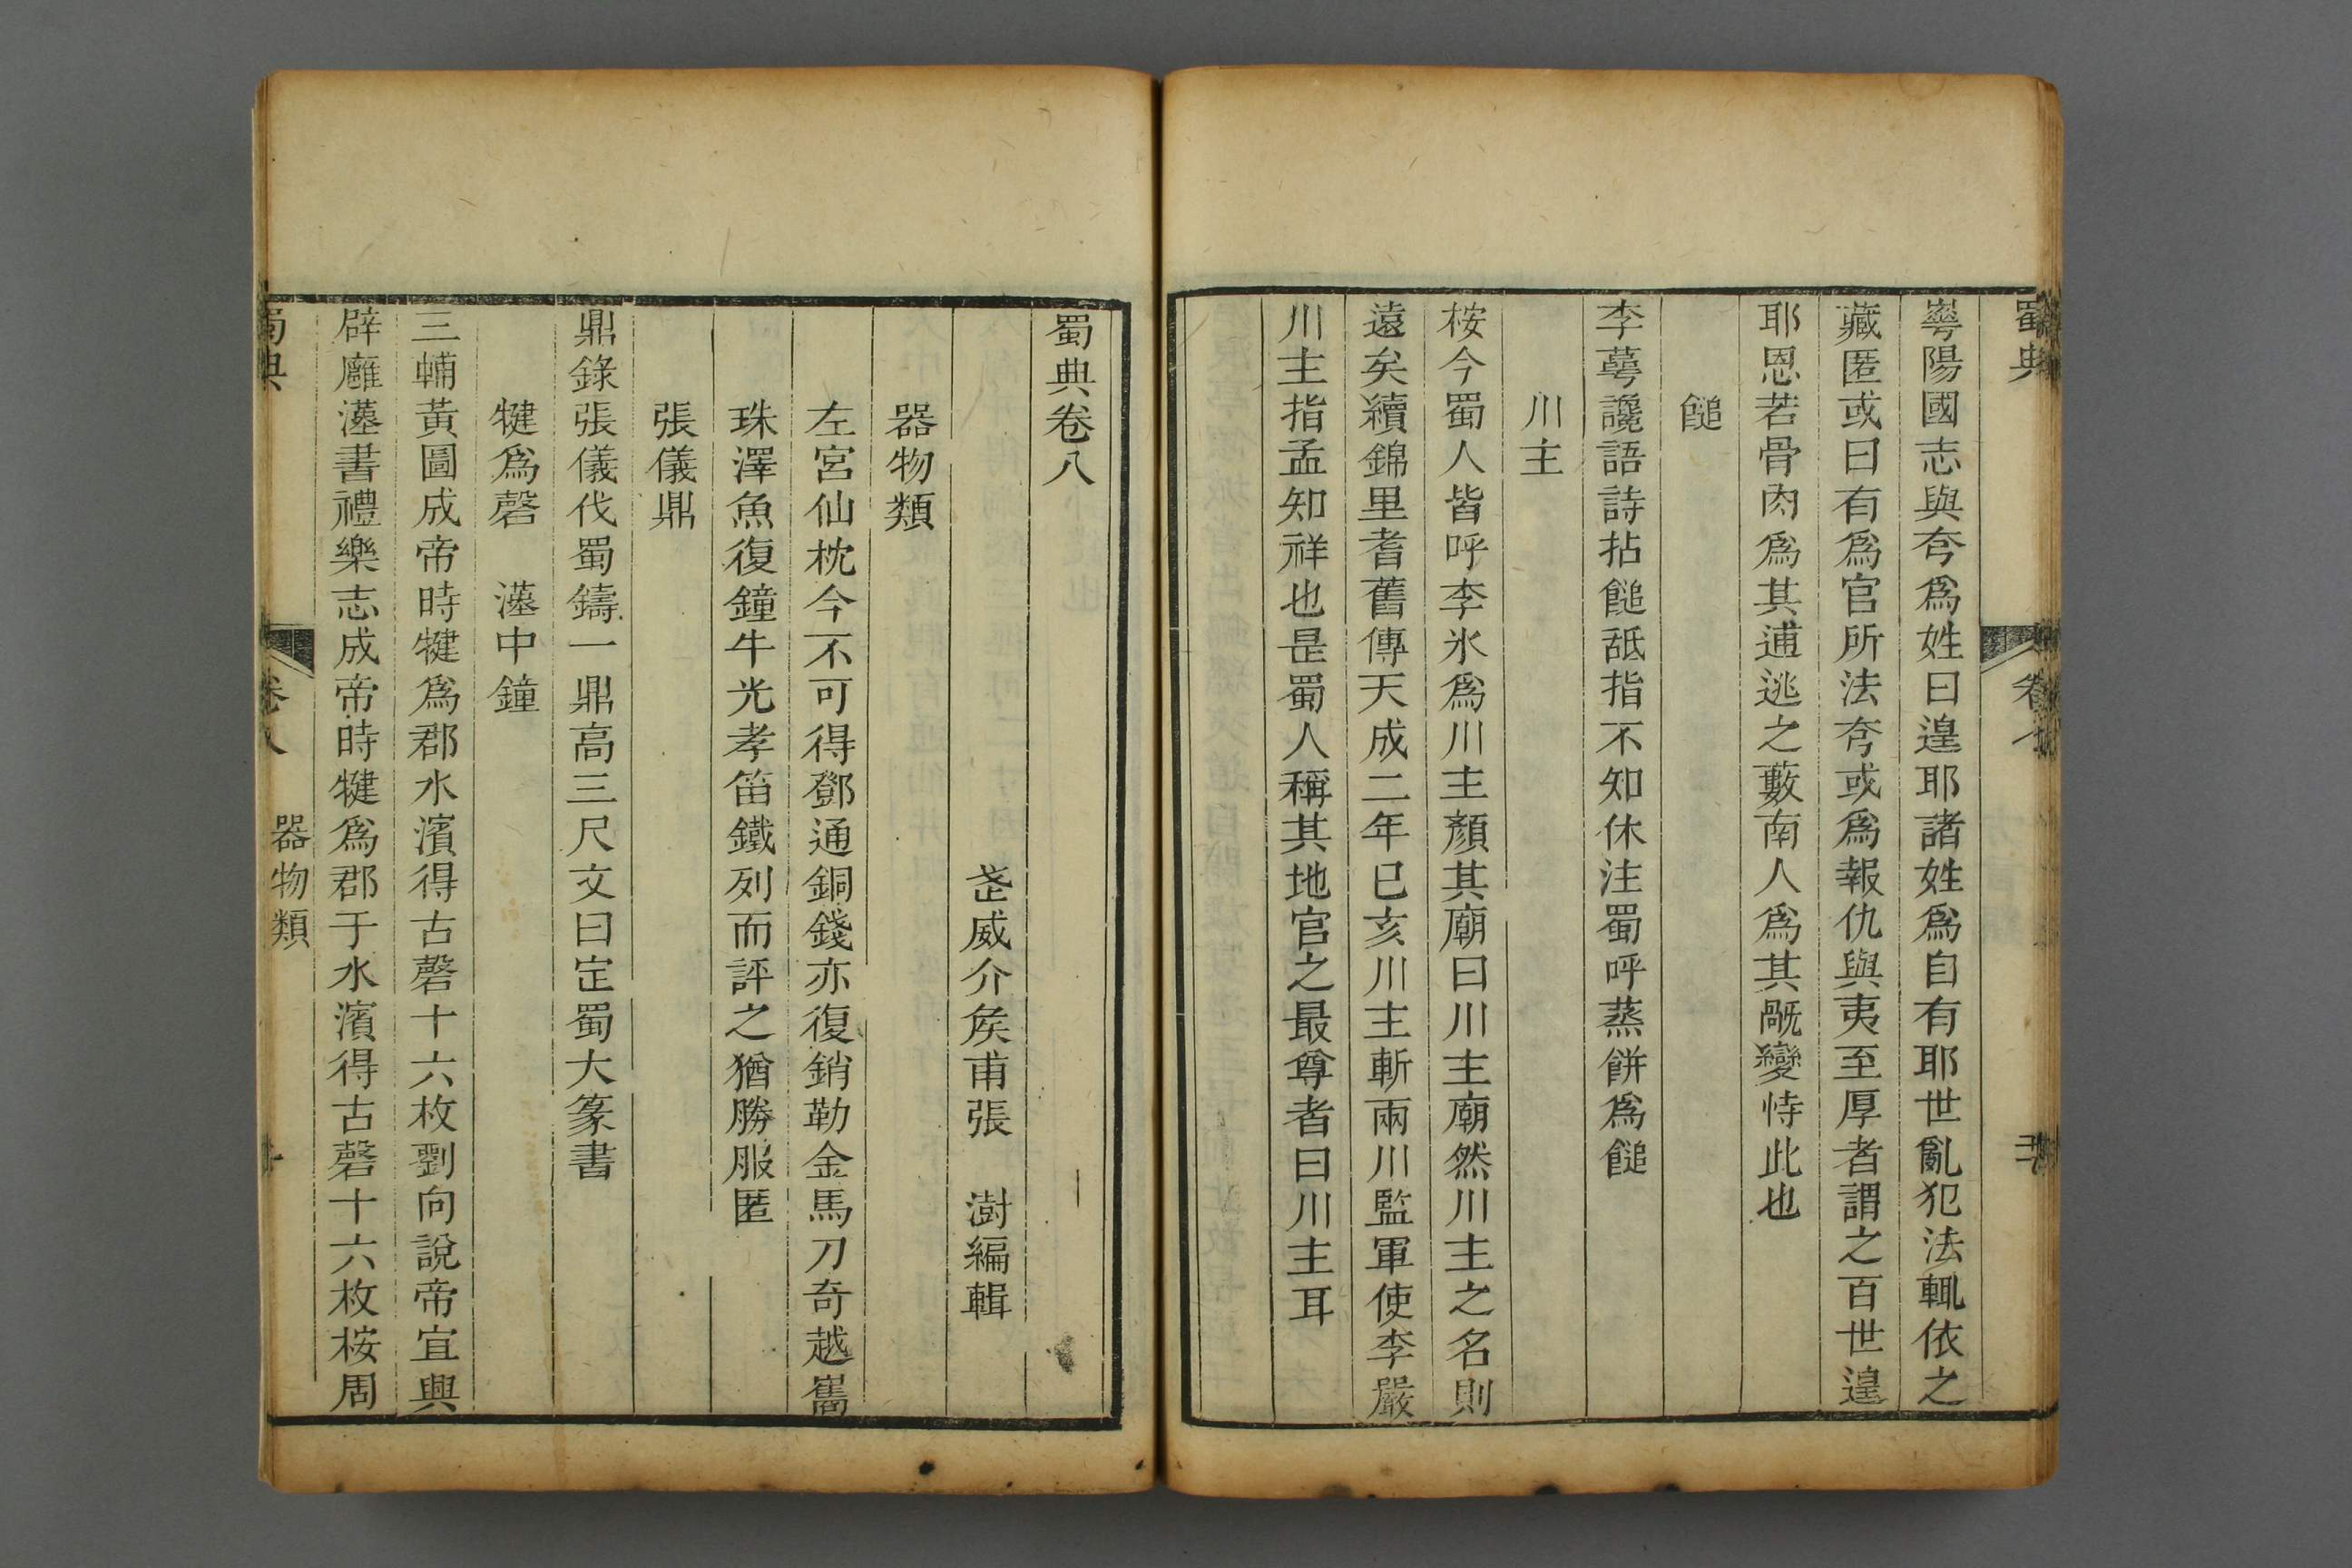 蜀典 卷七
蕚陽國志與夸爲姓曰遑耶諸姓爲自有耶世亂犯法輒依之
藏匿或曰有爲官所法夸或爲報仇與夷至厚者謂之百世遑
耶恩若骨肉爲其逋逃之藪南人爲其𣤶變恃此也
䭔
李蕚讒語詩拈䭔䑛指不知休注蜀呼蒸餅爲䭔
川主
桉今蜀人皆呼李氷爲川主顏其廟曰川主廟然川主之名則
遠矣續錦里耆舊傳天成二年巳亥川主斬兩川監軍使李嚴
川主指孟知祥也是蜀人稱其地官之最尊者曰川主耳
蜀典卷八
武威介矦甫張 澍編輯
器物類
左宮仙枕今不可得鄧通銅錢亦復銷勒金馬刀奇越嶲
珠澤魚復鐘牛光孝笛鐵列而評之猶勝服匿
張儀鼎
鼎錄張儀伐蜀鑄一鼎高三尺文曰定蜀大篆書
犍爲磬 漢中鐘
三輔黃圖成帝時犍爲郡水濱得古磬十六枚劉向說帝宜興
辟廱漢書禮樂志成帝時犍爲郡于水濱得古磬十六枚桉周
蜀典 卷八 器物類